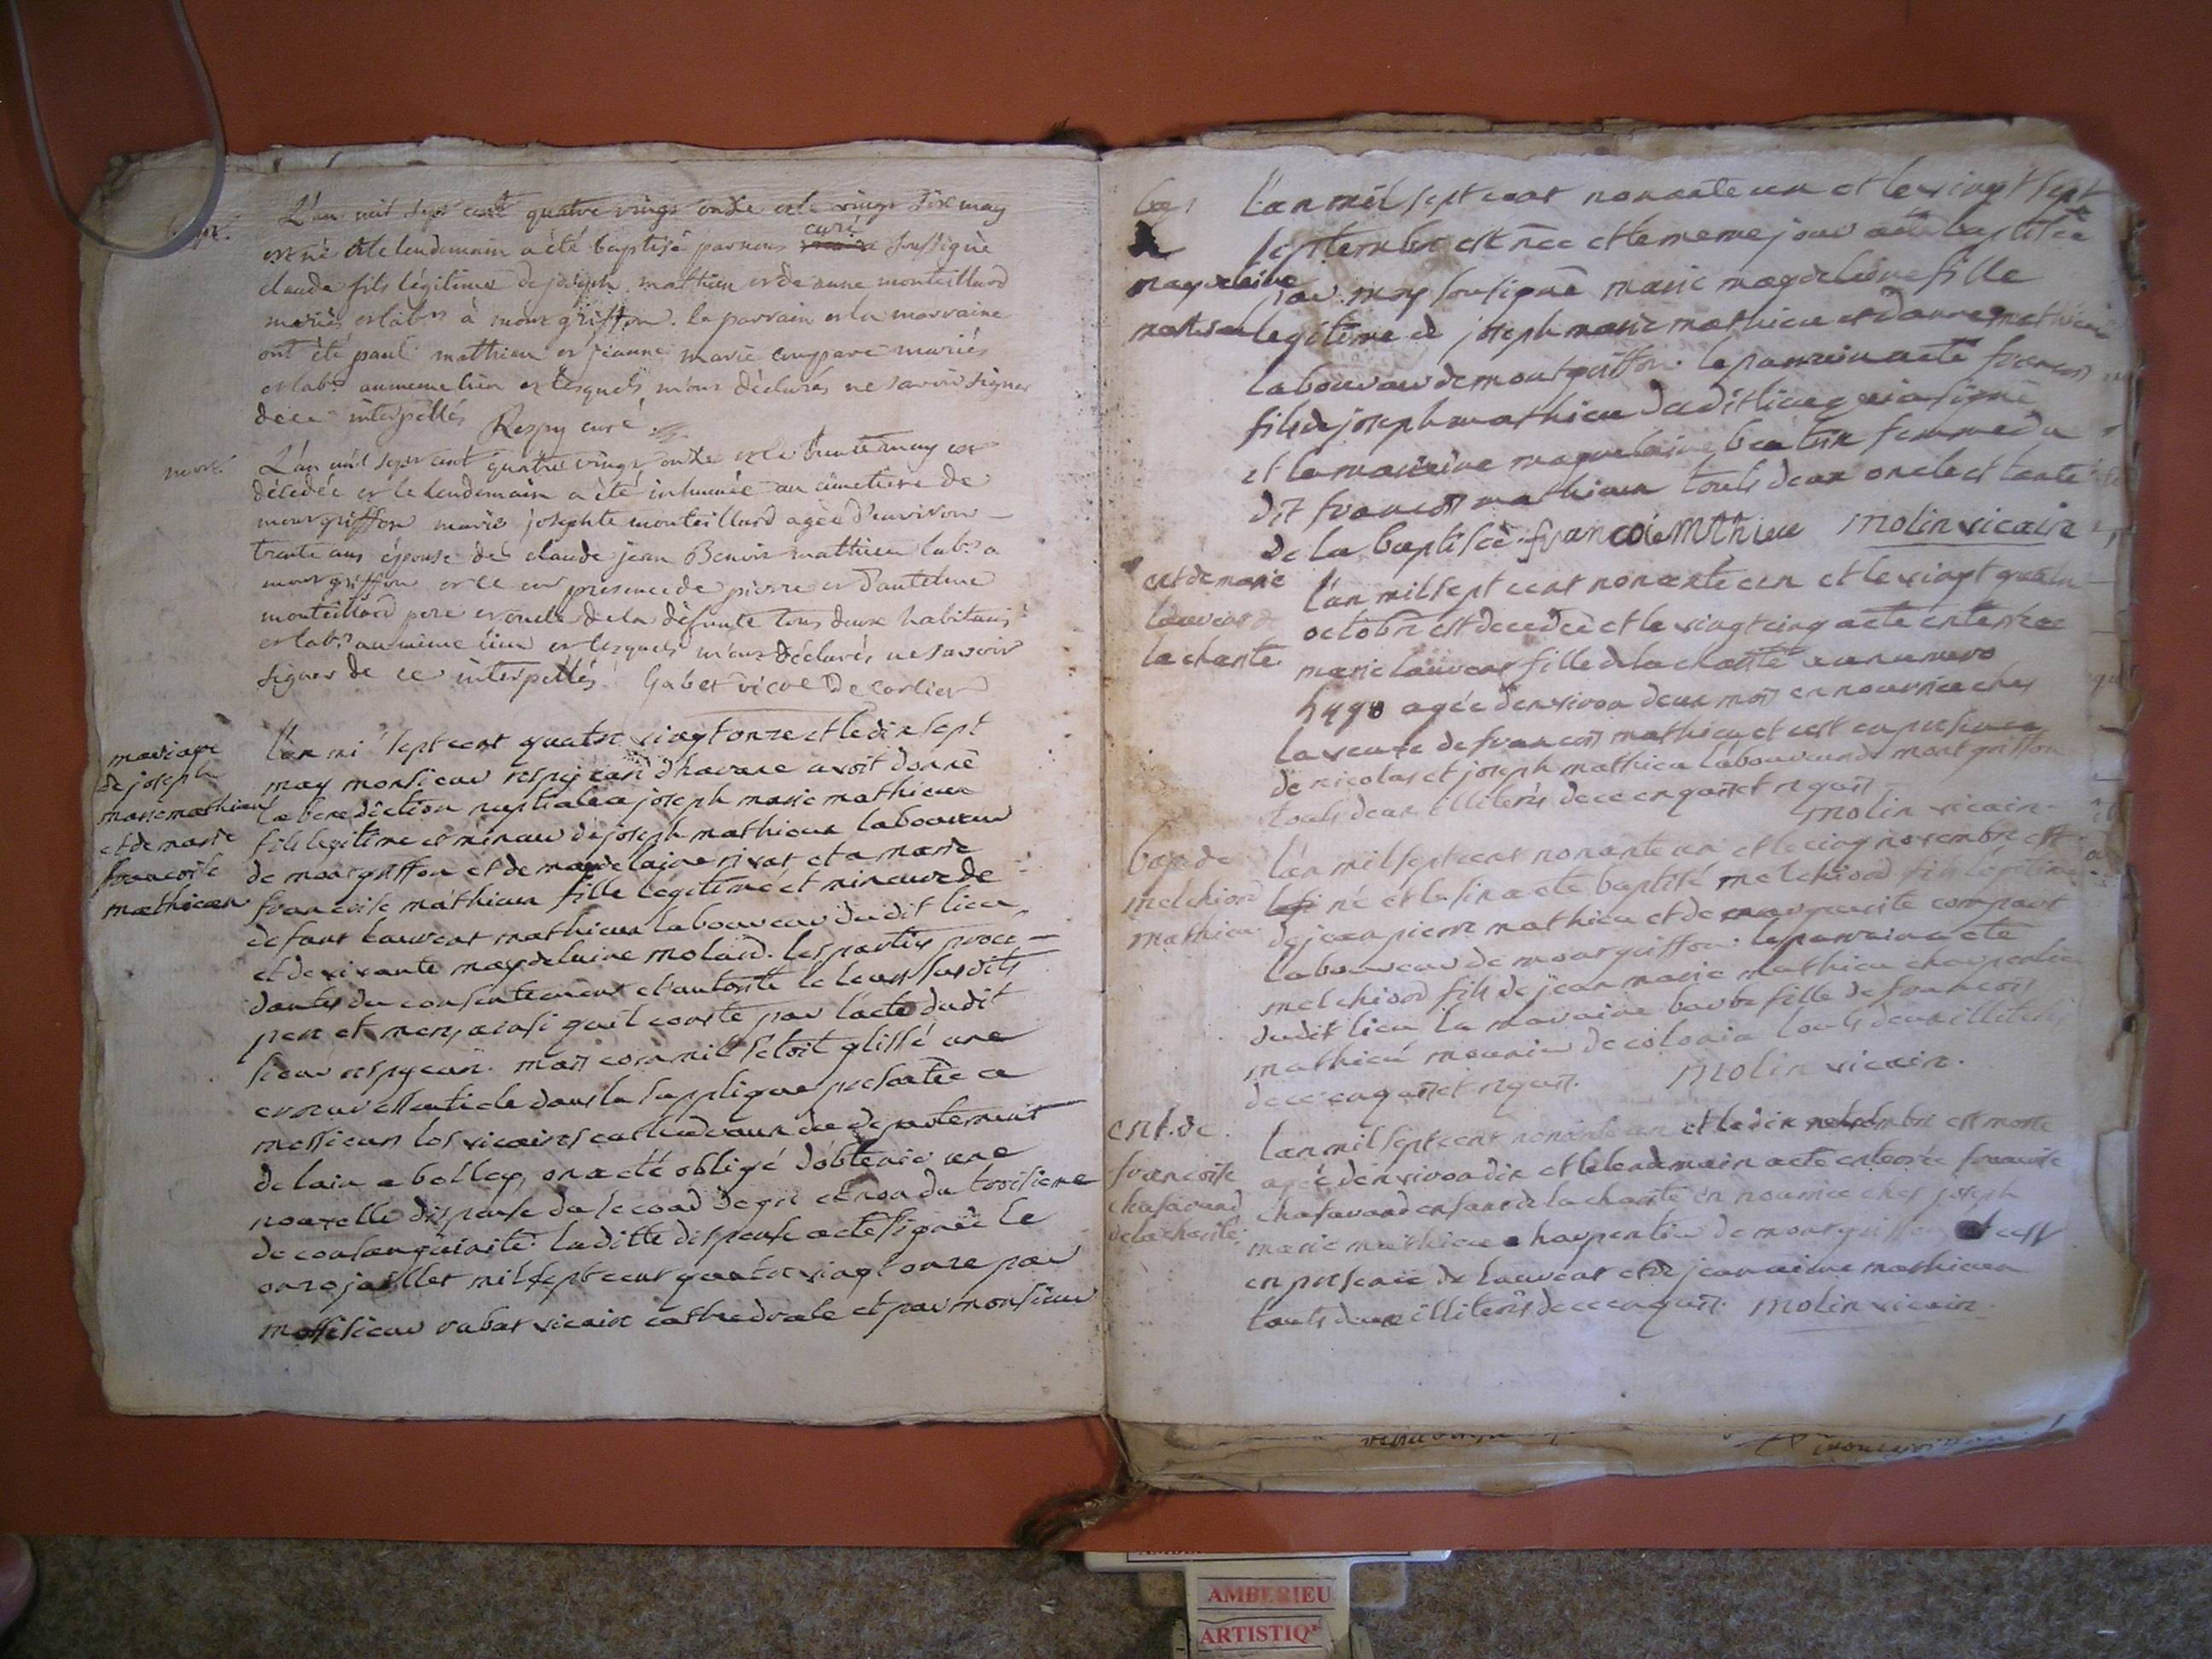 bapt.
L'an mil sept cent quatre vingt onze et le vingt six may
est né et le lendemain a été baptisé par nous curé soussigné
claude fils légitime de joseph mathieu et de anne monteillard
mariés et labrs à montgriffon. le parrain et la marraine
ont été paul mathieu et jeanne marie compare mariés
et labrs au meme lieu et lesquels m'ont déclarés ne savoir signer
de ce interpellés Respy curé
mort.
L'an mil sept cent quatre vingt onze et le trente may est
décédée et le lendemain a été inhumée au cimetiere de
montgriffon marie josephte monteillard agée d'environ
trente ans épouse de claude jean Benoit mathieu labr a
montgriffon et ce en presence de pierre et d'antelme
monteillard pere et oncle de la défunte tous deux habitans
et labrs au même lieu et lesquels m'ont déclarés ne savoir
signer de ce interpellés Gabet vicre De corlier
mariage
de joseph
marie mathieu
et de marie
francoise
mathieu
l'an mil sept cent quatre vingt onze et le dix sept
may monsieur respy curé d'havane avoit donné
la benediction nuptiale a joseph marie mathieu
fils legitime et mineur de joseph mathieu laboureur
de montgriffon et de magdelaine rivat et a marie
francoise mathieu fille legitime et mineure de
defunt laurent mathieu laboureur dudit lieu
et de vivante magdelaine molard. les parties proce
dantes du consentement et autorité de leurs susdits
pere et mere, ainsi qu'il conste par l'acte dudit
sieur respy curé. mais comme il s'etoit glissé une
erreur essentiele dans la supplique presentée a
messieurs les vicaires cathedraux du departement
de lain a belley, on a été obligé d'obtenir une
nouvelle dispense du second degré et non du troisieme
de consanguinité. laditte dispense a eté signée le
onze juillet mil sept cent quatre vingt onze par
monsieur rabat vicaire cathedrale et par monsieur
bap
magdelaine
mathieu
L'an mil sept cent nonante un et le vingt sept
septembre est née et le meme jour a eté baptisée
par moy sousigné marie magdelaine fille
legitime de joseph marie mathieu et d'anne mathieu
laboureur de montgriffon. le parrain a eté francois
fils de joseph mathieu dudit lieu qui a signé
et la maraine magdelaine beatrix femme du
dit francois mathieu touts deux oncle et tante
de la baptisée. francoie Mthieu molin vicaire
ent de marie
laurent de
la charité
l'an mil sept cent nonante un et le vingt quatre
octobre est decedeé et le vingt cinq a eté enterrée
marie laurent fille de la charité
agée d'environ deux mois en nourrice chez
la veuve de francois mathieu et c'est en presence
de nicolas et joseph mathieu laboureurs de montgriffon
touts deux illiterés de ce enquis et requis
molin vicaire
bap de
melchiord
mathieu
l'an mil sept cent nonante un et le cinq novembre est
né et le six a eté baptisé melchiord fils legitime
de jean pierre mathieu et de marguerite compare
laboureur de montgriffon. le parrain a eté
melchiord fils de jean marie mathieu charpentier
dudit lieu la maraine barbe fille de francois
mathieu meunier de colonia touts deux illiterés
de ce enquis et requis. molin vicaire.
ent. de
francoise
chasavand
de la charité
l'an mil sept cent nonante un et le dix novembre est morte
agée d'environ dix et le lendemain a eté enterrée francoise
chasavand enfant de la charité en nourrice chez joseph
marie mathieu charpentier de montgriffon et c'est
en presence de laurent et de jean aimé mathieu
touts deux illiterés de ce enquis. molin vicaire.
AMBERIEU
ARTISTIQ